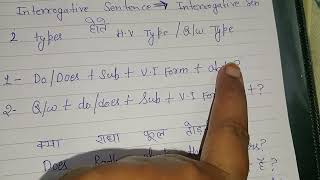 Interrogative Sentence → Interrogative Sen
2 types होते H.V Type / Q/w Type
1- Do/Does + Sub + V.I Form +
2- Q/w + do/does + Sub + V.I F ?
क्या राधा फूल
Does ?
है ?